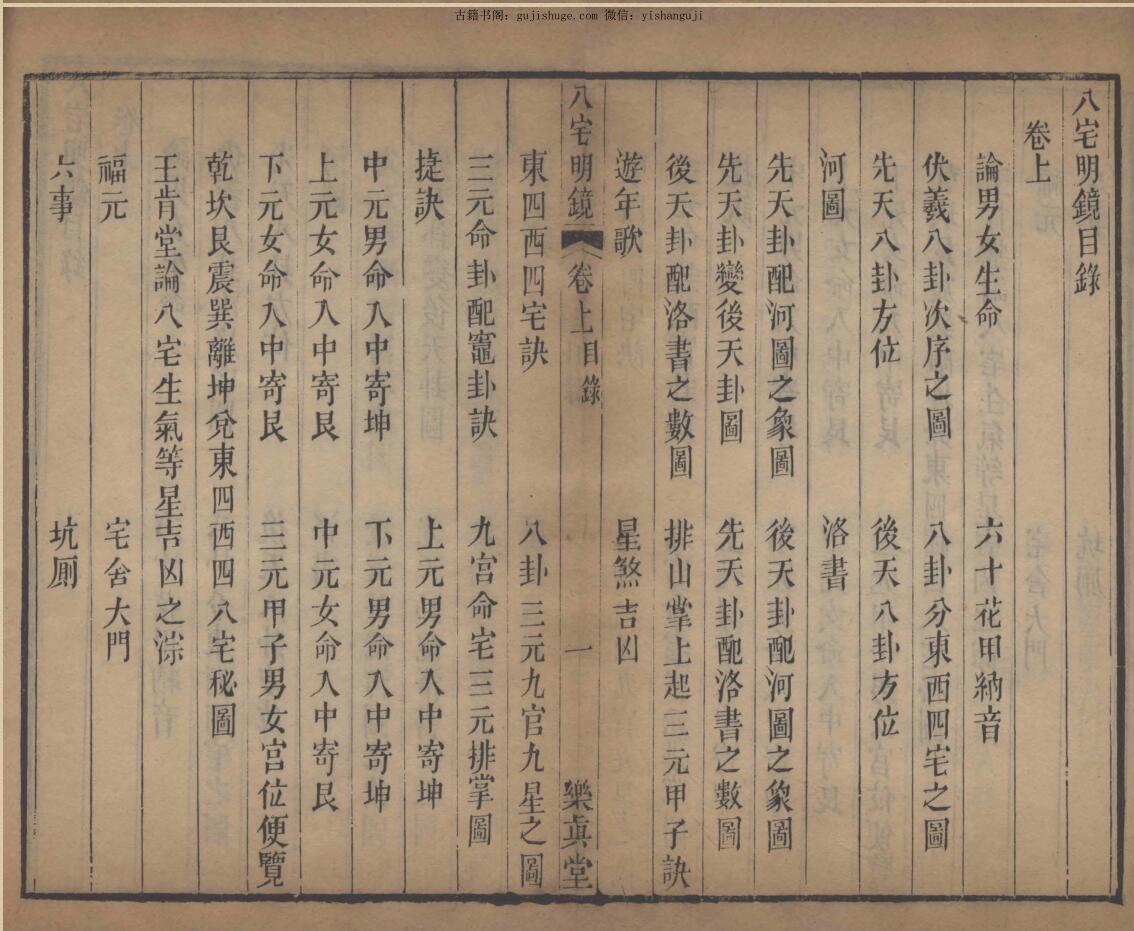 古籍书阁：gujishuge.com 微信：yishanguji
八宅明鏡目錄
卷上
論男女生命 六十花甲納音
伏羲八卦次序之圖 八卦分東西四宅之圖
先天八卦方位 後天八卦方位
河圖 洛書
先天卦配河圖之象圖 後天卦配河圖之象圖
先天卦變後天卦圖 先天卦配洛書之數圖
後天卦配洛書之數圖 排山掌上起三元甲子訣
遊年歌 星煞吉凶
八宅明鏡 卷上目錄 一 樂眞堂
東四西四宅訣 八卦三元九官九星之圖
三元命卦配竈卦訣 九宮命宅三元排掌圖
捷訣 上元男命入中寄坤
中元男命入中寄坤 下元男命入中寄坤
上元女命入中寄艮 中元女命入中寄艮
下元女命入中寄艮 三元甲子男女宮位便覽
乾坎艮震巽離坤兌東四西四八宅秘圖
王肯堂論八宅生氣等星吉凶之淙
福元 宅舍大門
六事 坑厠